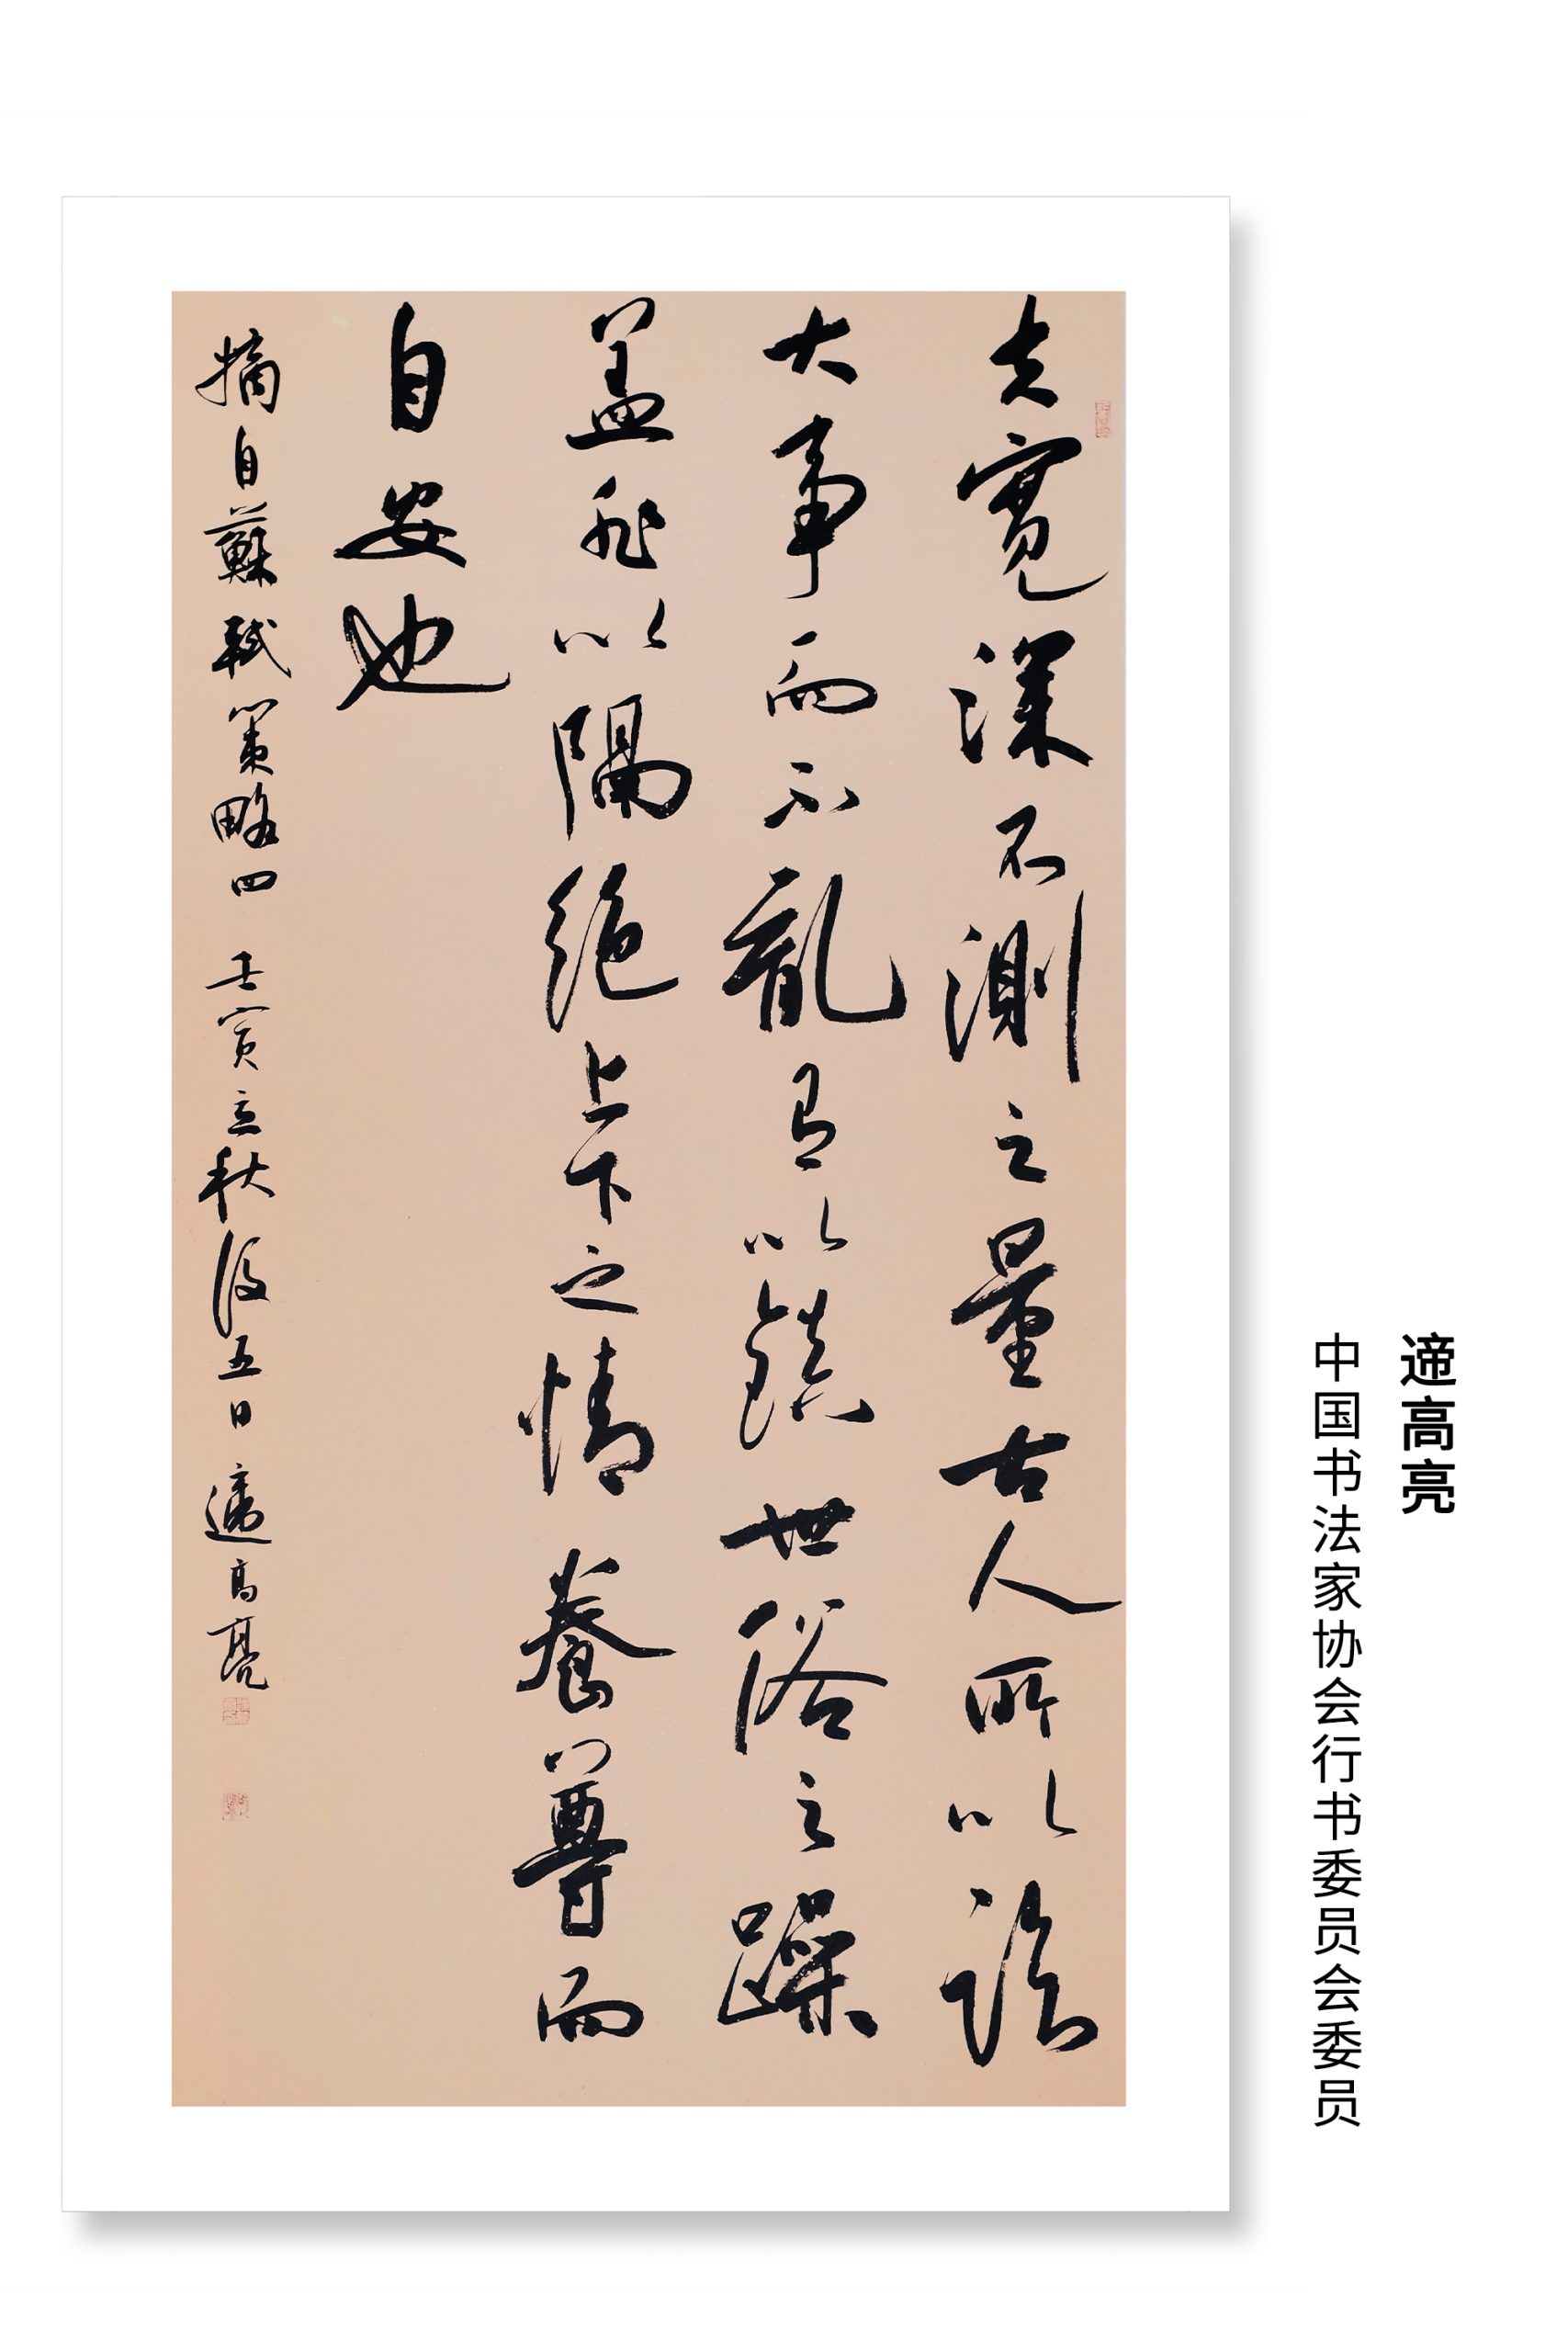 遆高亮
中国书法家协会行书委员会委员
夫寬深不測之量古人所以臨
大事而不亂有以鎮世俗之躁
盖非以隔絶上下之情養尊而
自安也
摘自蘇軾策略四 壬寅立秋後五日 遆高亮